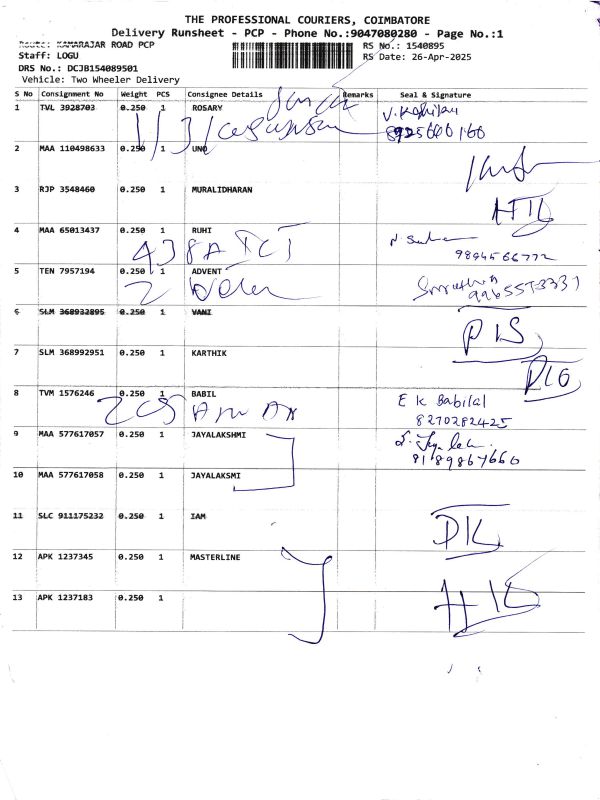 THE PROFESSIONAL COURIERS, COIMBATORE
Delivery Runsheet - PCP - Phone No.:9047080280 - Page No.:1
Route: KAMARAJAR ROAD PCP
RS No.: 1540895
Staff: LOGU
RS Date: 26-Apr-2025
DRS No.: DCJB154089501
Vehicle: Two Wheeler Delivery
S No Consignment No Weight PCS Consignee Details Remarks Seal & Signature
1 TVL 3928703 0.250 1 ROSARY
2 MAA 110498633 0.250 1 UNO
3 RJP 3548460 0.250 1 MURALIDHARAN
4 MAA 65013437 0.250 1 RUHI
9894566772
5 TEN 7957194 0.250 1 ADVENT
6 SLM 368932895 0.250 1 VANI
7 SLM 368992951 0.250 1 KARTHIK
8 TVM 1576246 0.250 1 BABIL E K Babilal
8270282425
9 MAA 577617057 0.250 1 JAYALAKSHMI
8189867660
10 MAA 577617058 0.250 1 JAYALAKSMI
11 SLC 911175232 0.250 1 IAM
12 APK 1237345 0.250 1 MASTERLINE
13 APK 1237183 0.250 1